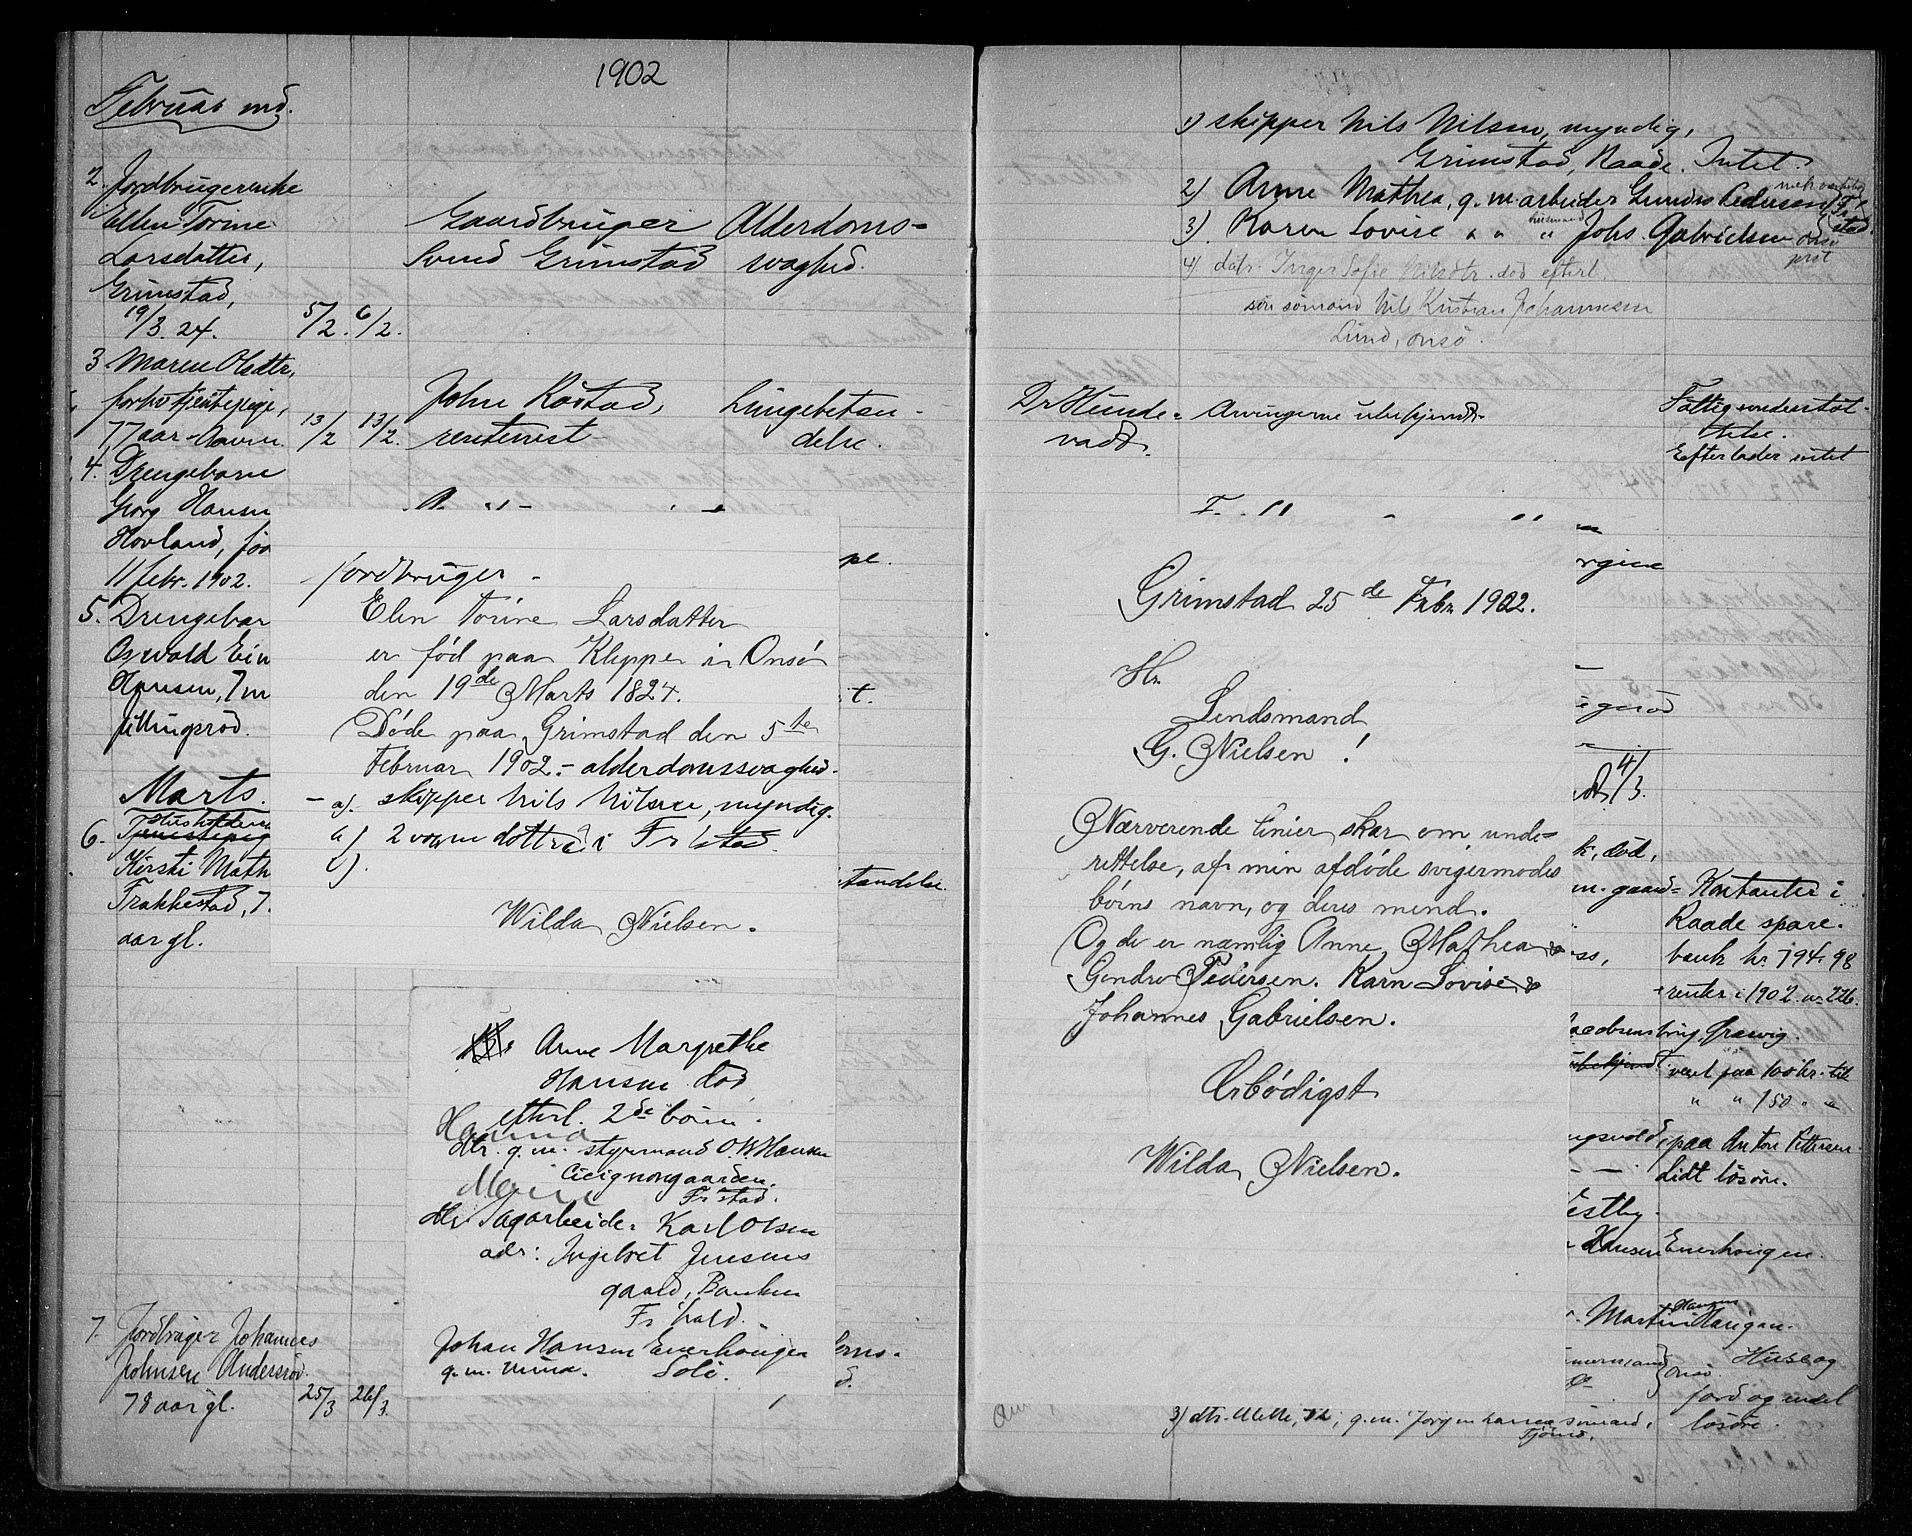 1902
Februar md.
2. Jordbrugerenke
Ellen Torine
Larsdatter,
Grimstad,
19/3 24. 5/2. 6/2.
Gaardbruger Alderdoms-
Svend Grimstad svaghed.
3 Maren Olsdtr,
forhv tjentepige,
77 aar - 13/2 13/2.
John Kostad, Lungebetæn-
delse.
4. Drengebarn
Georg Hansen
Hovland, fød
11 febr. 1902.
5. Drengebar
Oswald Ein
Hansen, 7 m
Jellingrød.
Marts.
Husholder
6. Tjenestepig
Kirsti Math
Frakkestad, 7.
aar gl.
7. Jordbruger Johannes
Johnsen Andersrød.
78 aar gl. 25/3 26/3.
pe.
t.
standelse.
jordbruger -
Elen Torine Larsdatter
er fød paa Klepper i Onsø
den 19de Marts 1824.
Døde paa Grimstad den 5te
Februar 1902. - alderdomssvaghed.
- a). skipper Nils Nilsen, myndig.
b) 2 voxne døttre i Fr stad.
c).
Wilda Nielsen.
Anne Margrethe
Hansen død
efterl. 2de børn.
Hanna
dtr. g.m. styrmand O.W. Hansen
Cicignongaarden.
Fr stad.
Marie
dtr Sagarbeider Karl Olsen
adr: Ingebret Jensens
gaard, Banken
Fr hald.
Johan Hansen Enerhaugen
g.m. Soli.
1) skipper Nils Nilsen, myndig,
Grimstad, Raade. Intet.
2) Anne Mathea, g.m. arbeider Gundro Pedersen
3). Karen Lovise " " " Johs. Gabrielsen Onsø
prst
4) datr. Inger Sofie Nilsdtr. død efterl.
søn sømand Nils Kristian Johannesen
Lund, Onsø.
Dr Hunde-
vadt.
Arvingerne ubekjendt.
Fattigunderstøt-
telse.
Efterlader intet
Grimstad 25de Febr 1902.
Hr.
Lendsmand
G. Nielsen!
Nærverende linier skar om unde-
rettelse, af min afdøde svigermodes
børns navn, og deres mend.
Og de er næmlig Anne Mathea &
Gondro Pedersen. Karn Lovise &
Johannes Gabrielsen.
Ærbødigst
Wilda Nielsen.
4/3.
død,
m. gaard- Kontanter i
Raade spare.
bank kr. 794.98
+ renter i 1902.
vexel paa 100 kr. til
" " 150 " "
paa Anton Pettersen
Lidt løsøre.
Hansen Enerhaugen.
Hansen
Martin Haugan.
Onsø.
Huse og
jord og endel
løsøre.
3) dtr. Mette, 52, g.m. Jørgen Larsen sømand,
Tjømø.